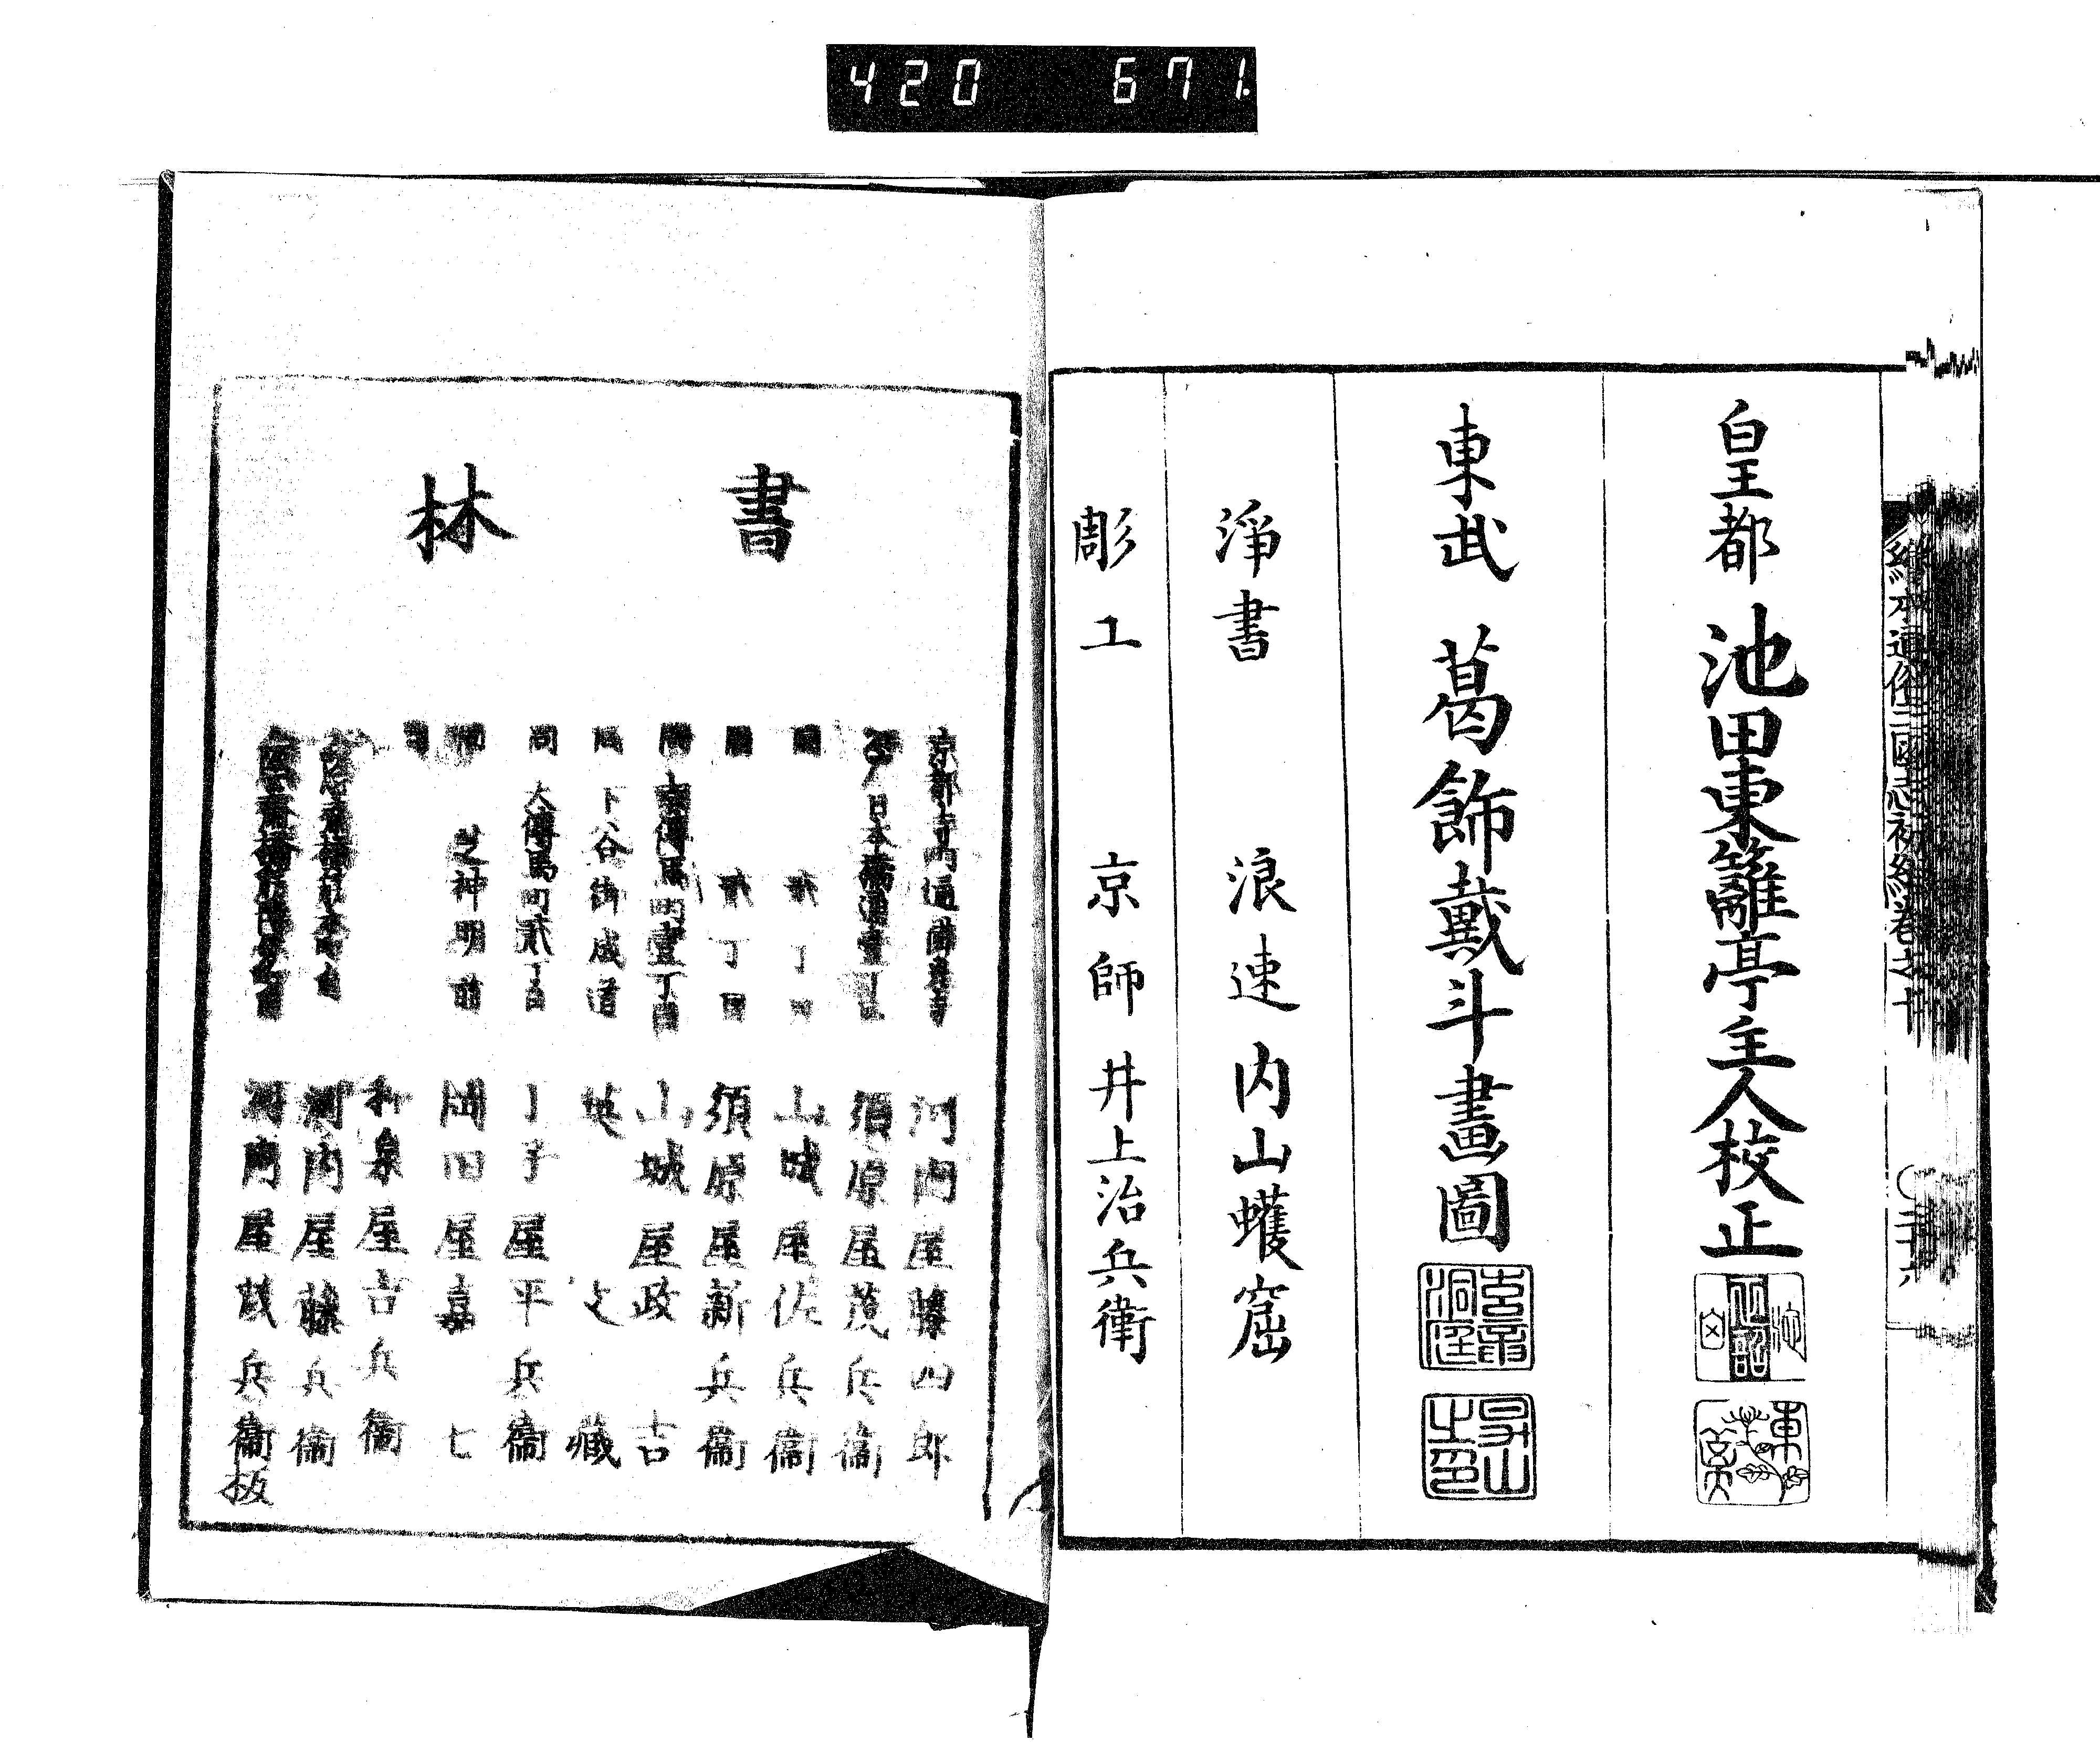 420 671.
繪本通俗三國志初編卷之十
皇都 池田東籬亭主人校正
東武 葛飾戴斗畫圖
淨書 浪速 内山蠖窟
彫工 京師 井上治兵衛
書林
京都 河内屋藤四郎
江戸日本橋通壹丁目 須原屋茂兵衞
同 貳丁目 山城屋佐兵衞
同 貳丁目 須原屋新兵衞
同 本傳馬町壹丁目 山城屋政吉
同 下谷御成道 英文藏
同 大傳馬町貳丁目 丁子屋平兵衞
同 芝神明前 岡田屋嘉七
同 和泉屋吉兵衞
河内屋藤兵衞
河内屋茂兵衞板